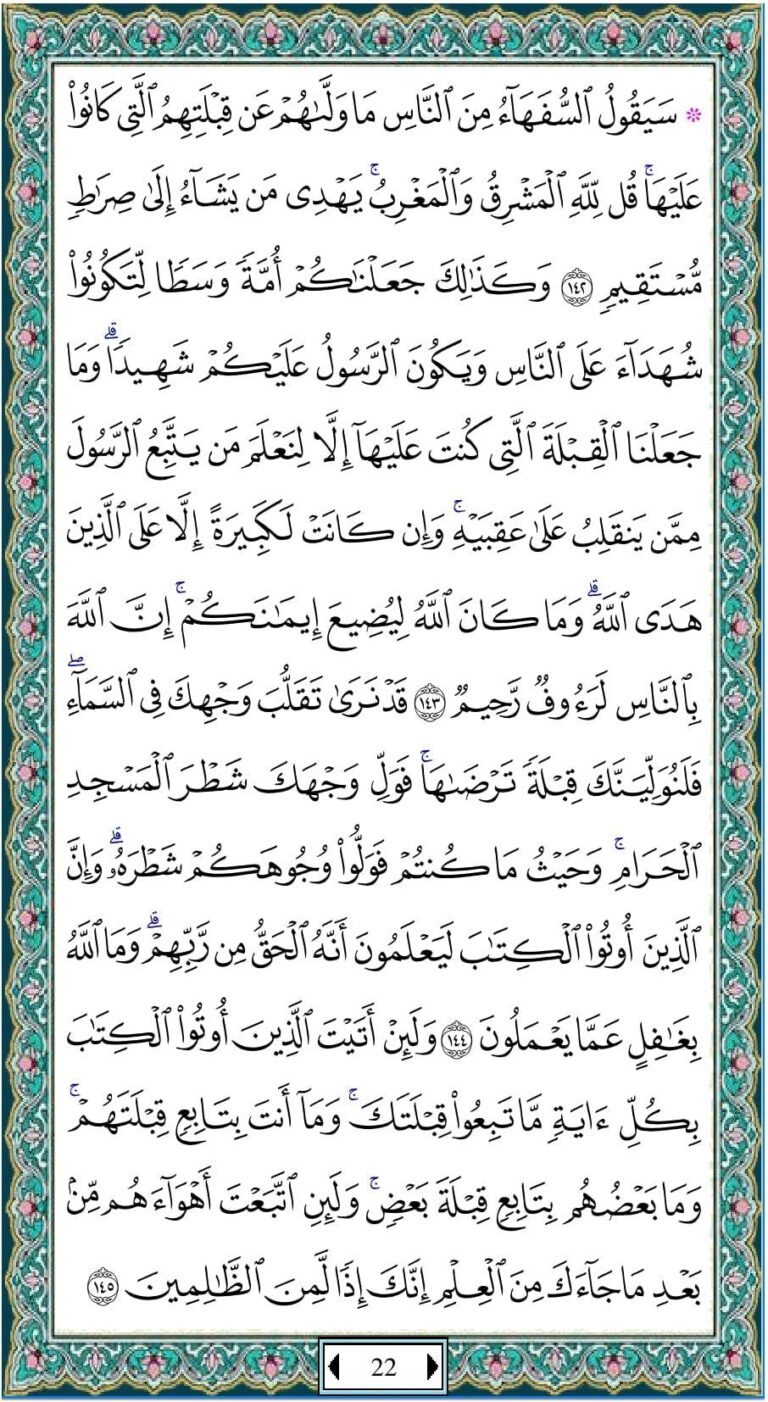 ۞ سَيَقُولُ ٱلسُّفَهَآءُ مِنَ ٱلنَّاسِ مَا وَلَّىٰهُمۡ عَن قِبۡلَتِهِمُ ٱلَّتِي كَانُواْ
عَلَيۡهَاۚ قُل لِّلَّهِ ٱلۡمَشۡرِقُ وَٱلۡمَغۡرِبُۚ يَهۡدِي مَن يَشَآءُ إِلَىٰ صِرَٰطٖ
مُّسۡتَقِيمٖ ١٤٢ وَكَذَٰلِكَ جَعَلۡنَٰكُمۡ أُمَّةٗ وَسَطٗا لِّتَكُونُواْ
شُهَدَآءَ عَلَى ٱلنَّاسِ وَيَكُونَ ٱلرَّسُولُ عَلَيۡكُمۡ شَهِيدٗاۗ وَمَا
جَعَلۡنَا ٱلۡقِبۡلَةَ ٱلَّتِي كُنتَ عَلَيۡهَآ إِلَّا لِنَعۡلَمَ مَن يَتَّبِعُ ٱلرَّسُولَ
مِمَّن يَنقَلِبُ عَلَىٰ عَقِبَيۡهِۚ وَإِن كَانَتۡ لَكَبِيرَةً إِلَّا عَلَى ٱلَّذِينَ
هَدَى ٱللَّهُۗ وَمَا كَانَ ٱللَّهُ لِيُضِيعَ إِيمَٰنَكُمۡۚ إِنَّ ٱللَّهَ
بِٱلنَّاسِ لَرَءُوفٞ رَّحِيمٞ ١٤٣ قَدۡ نَرَىٰ تَقَلُّبَ وَجۡهِكَ فِي ٱلسَّمَآءِۖ
فَلَنُوَلِّيَنَّكَ قِبۡلَةٗ تَرۡضَىٰهَاۚ فَوَلِّ وَجۡهَكَ شَطۡرَ ٱلۡمَسۡجِدِ
ٱلۡحَرَامِۚ وَحَيۡثُ مَا كُنتُمۡ فَوَلُّواْ وُجُوهَكُمۡ شَطۡرَهُۥۗ وَإِنَّ
ٱلَّذِينَ أُوتُواْ ٱلۡكِتَٰبَ لَيَعۡلَمُونَ أَنَّهُ ٱلۡحَقُّ مِن رَّبِّهِمۡۗ وَمَا ٱللَّهُ
بِغَٰفِلٍ عَمَّا يَعۡمَلُونَ ١٤٤ وَلَئِنۡ أَتَيۡتَ ٱلَّذِينَ أُوتُواْ ٱلۡكِتَٰبَ
بِكُلِّ ءَايَةٖ مَّا تَبِعُواْ قِبۡلَتَكَۚ وَمَآ أَنتَ بِتَابِعٖ قِبۡلَتَهُمۡۚ
وَمَا بَعۡضُهُم بِتَابِعٖ قِبۡلَةَ بَعۡضٖۚ وَلَئِنِ ٱتَّبَعۡتَ أَهۡوَآءَهُم مِّنۢ
بَعۡدِ مَا جَآءَكَ مِنَ ٱلۡعِلۡمِ إِنَّكَ إِذٗا لَّمِنَ ٱلظَّٰلِمِينَ ١٤٥
22